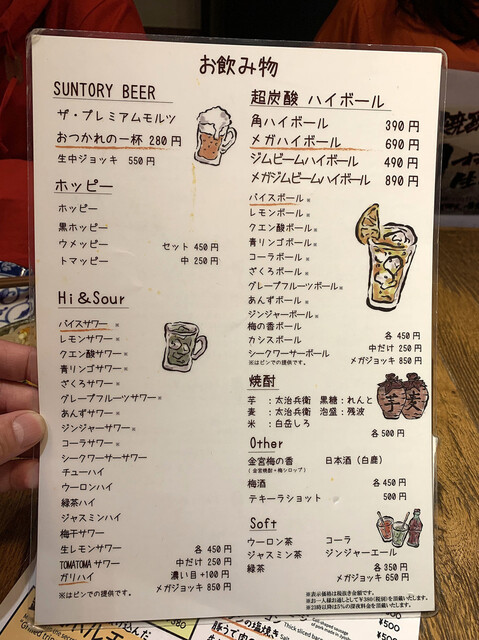 お飲み物
SUNTORY BEER
ザ・プレミアムモルツ
おつかれの一杯 280円
生中ジョッキ 550円
ホッピー
ホッピー
黒ホッピー
ウメッピー セット 450円
トマッピー 中 250円
Hi & Sour
バイスサワー ※
レモンサワー ※
クエン酸サワー ※
青リンゴサワー ※
ざくろサワー ※
グレープフルーツサワー ※
あんずサワー ※
ジンジャーサワー ※
コーラサワー ※
シークワーサーサワー
チューハイ
ウーロンハイ
緑茶ハイ
ジャスミンハイ
梅干サワー
生レモンサワー 各 450円
TOMATOMAサワー 中だけ 250円
ガリハイ 濃い目 +100円
※はビンでの提供です。 メガジョッキ 850円
超炭酸 ハイボール
角ハイボール 390円
メガハイボール 690円
ジムビームハイボール 490円
メガジムビームハイボール 890円
バイスボール ※
レモンボール ※
クエン酸ボール ※
青リンゴボール ※
コーラボール ※
ざくろボール ※
グレープフルーツボール ※
あんずボール ※
ジンジャーボール ※
梅の香ボール
カシスボール 各 450円
シークワーサーボール 中だけ 250円
※はビンでの提供です。 メガジョッキ 850円
焼酎
芋 : 太治兵衛 黒糖 : れんと
麦 : 太治兵衛 泡盛 : 残波
米 : 白岳しろ
各 500円
芋 麦
Other
金宮梅の香 日本酒（白鹿）
（金宮焼酎・梅シロップ）
梅酒 各 450円
テキーラショット 500円
Soft
ウーロン茶 コーラ
ジャスミン茶 ジンジャーエール
緑茶 各 350円
メガジョッキ 650円
※表示価格は税抜き金額です。
※お一人様お通しとして￥380(税別)を頂戴いたします。
※23時以降は5%の深夜料金を頂戴いたします。